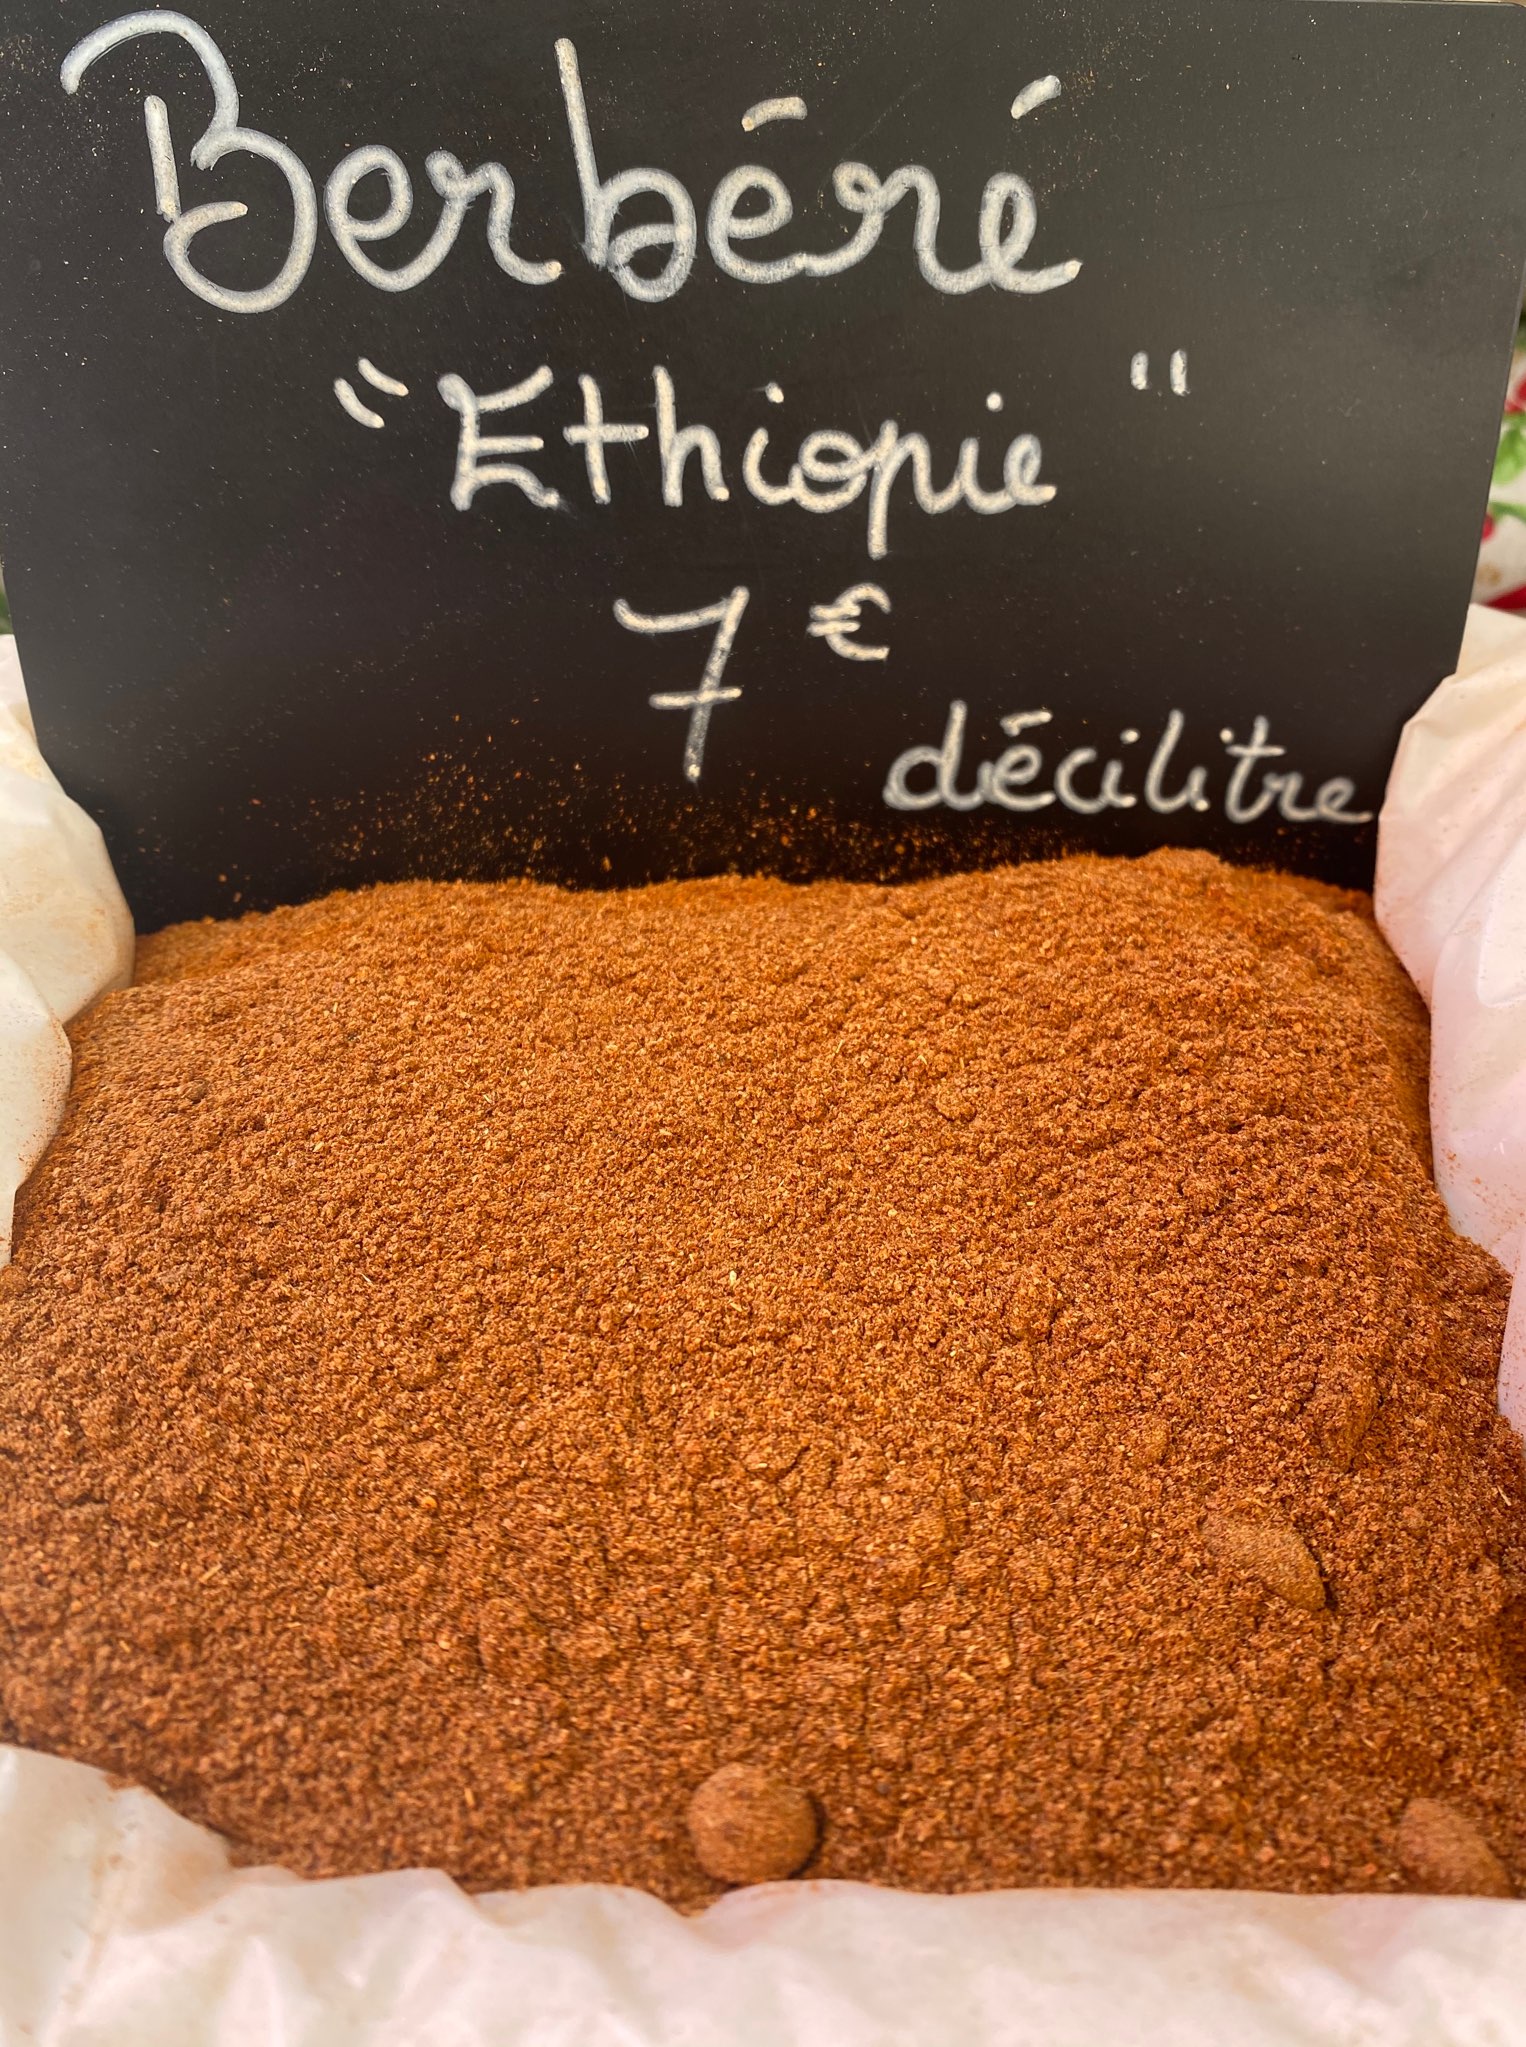 Berbéré
"Ethiopie"
7€
décilitre